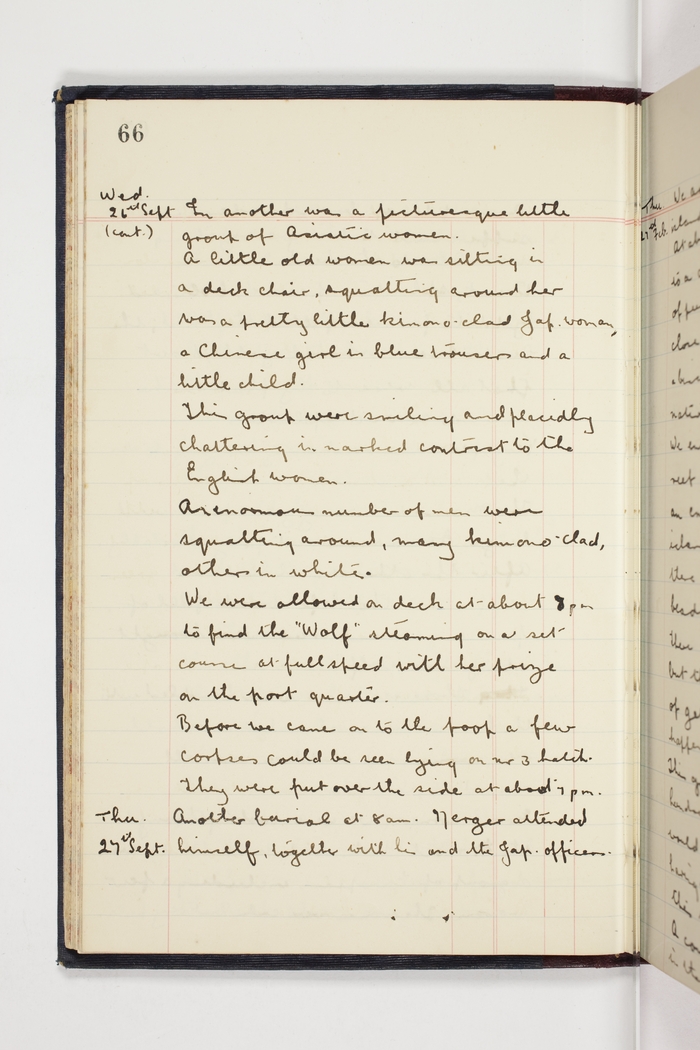 66
Wed.
26th Sept
(cont.)
In another was a picturesque little
group of Asiatic women.
A little old women was sitting in
a deck chair, squatting around her
was a pretty little kimono-clad Jap. woman,
a Chinese girl in blue trousers and a
little child.
This group were smiling and placidly
chattering in marked contrast to the
English women.
An enormous number of men were
squatting around, many kimono-clad,
others in white.
We were allowed on deck at about 8 pm
to find the "Wolf" steaming on a set
course at full speed with her prize
on the port quarter.
Before we came on to the poop a few
corpses could be seen lying on nr 3 hatch.
They were put over the side at about 7 pm.
Thu.
27th Sept.
Another burial at 8 am. Nerger attended
himself, together with his and the Jap. officers.
Thu
27th Feb.
We